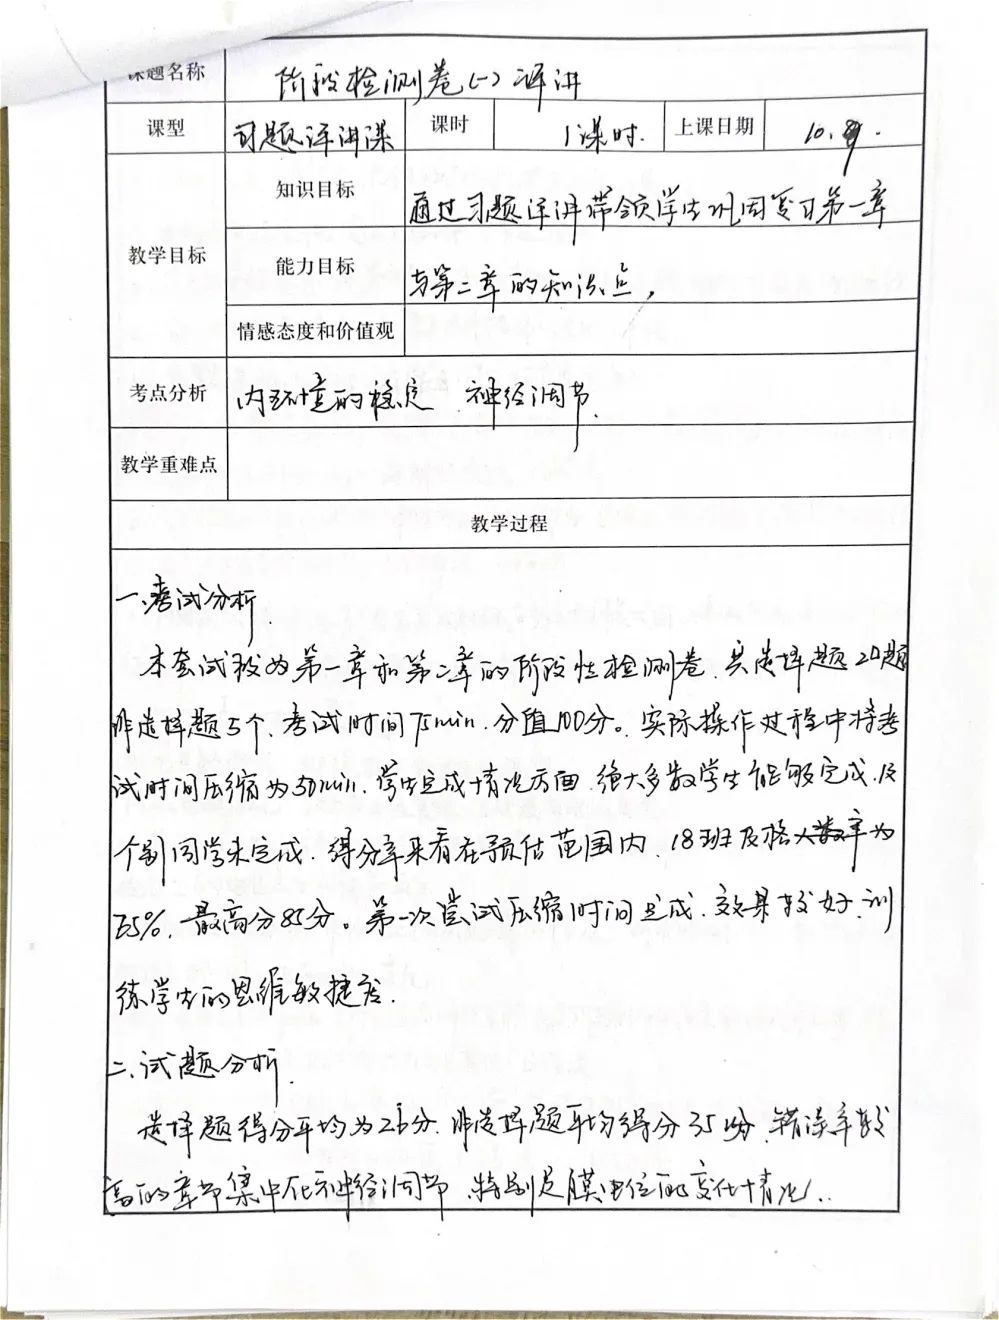 课题名称 阶段检测卷(一)评讲
课型 习题评讲课 课时 1课时. 上课日期 10.
教学目标 知识目标 通过习题评讲带领学生巩固复习第一章
能力目标 与第二章的知识点,
情感态度和价值观
考点分析 内环境的稳定 神经调节.
教学重难点
教学过程
一.考试分析.
本套试卷为第一章和第二章的阶段性检测卷.共选择题20题
非选择题5个.考试时间75min.分值100分。实际操作过程中将考
试时间压缩为50min.学生完成情况方面.绝大多数学生能够完成.仅
个别同学未完成.得分率来看在预估范围内.18班及格率为
%.最高分85分。第一次尝试压缩时间完成.效果较好.训
练学生的思维敏捷度.
二.试题分析.
选择题得分平均为26分.非选择题平均得分35分.错误率较
高的章节集中在神经调节.特别是膜电位的变化情况..